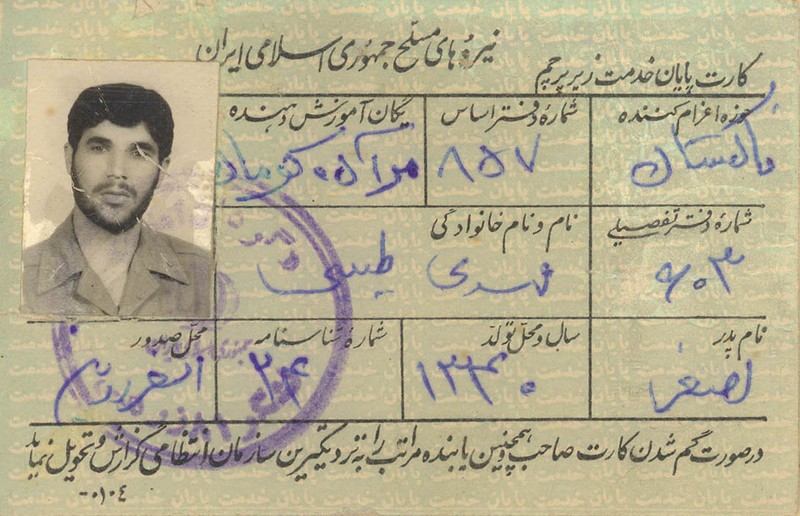 نیروهای مسلح جمهوری اسلامی ایران
کارت پایان خدمت زیر پرچم
حوزه اعزام کننده
شمارهٔ دفتر اساس
یگان آموزش دهنده
تاکستان
۸۵۷
شمارهٔ دفتر تفصیلی
نام و نام خانوادگی
۹۰۳
مهدی طیبی
نام پدر
سال و محل تولد
شمارهٔ شناسنامه
محل صدور
۱۳۴۰
۲۴
درصورت گم شدن کارت صاحب همچنین یابنده مراتب را به نزدیکترین سازمان انتظامی گزارش و تحویل نماید
۰۱۰۴-